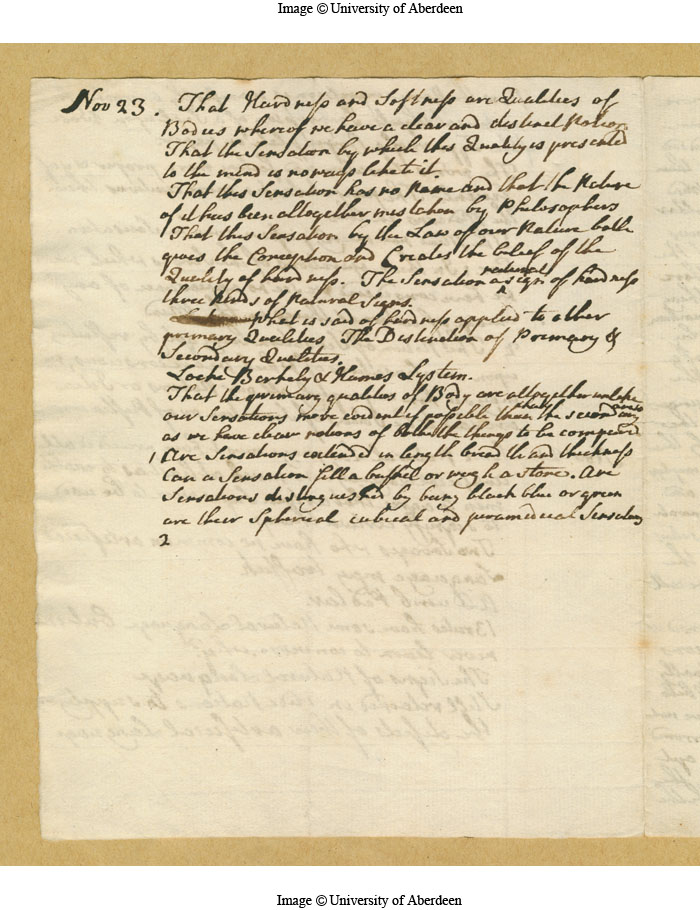 Image © University of Aberdeen
Nov 23. That Hardness and Softness are Qualities of
Bodies whereof we have a clear and distinct Notion
That the Sensation by which this Quality is presented
to the mind is no ways like to it.
That this Sensation has no Name and that the Nature
of it has been altogether mistaken by Philosophers
That this Sensation by the Law of our Nature both
gives the Conception and Creates the belief of the
Quality of hardness. The Sensation a natural sign of hardness
three kinds of Natural Signs.
What is said of hardness applied to other
primary Qualities The Distinction of Primary &
Secondary Qualities.
Locke Berkely & Humes System.
That the primary qualities of Body are altogether unlike
our Sensations more evident if possible than the secondary
as we have clear notions of both the things to be compared
1 Are Sensations extended in length breadth and thickness
Can a Sensation fill a bushel or weigh a stone. Are
Sensations distinguished by being black blue or green
are their Spherical cubical and piramidical Sensations
2
Image © University of Aberdeen